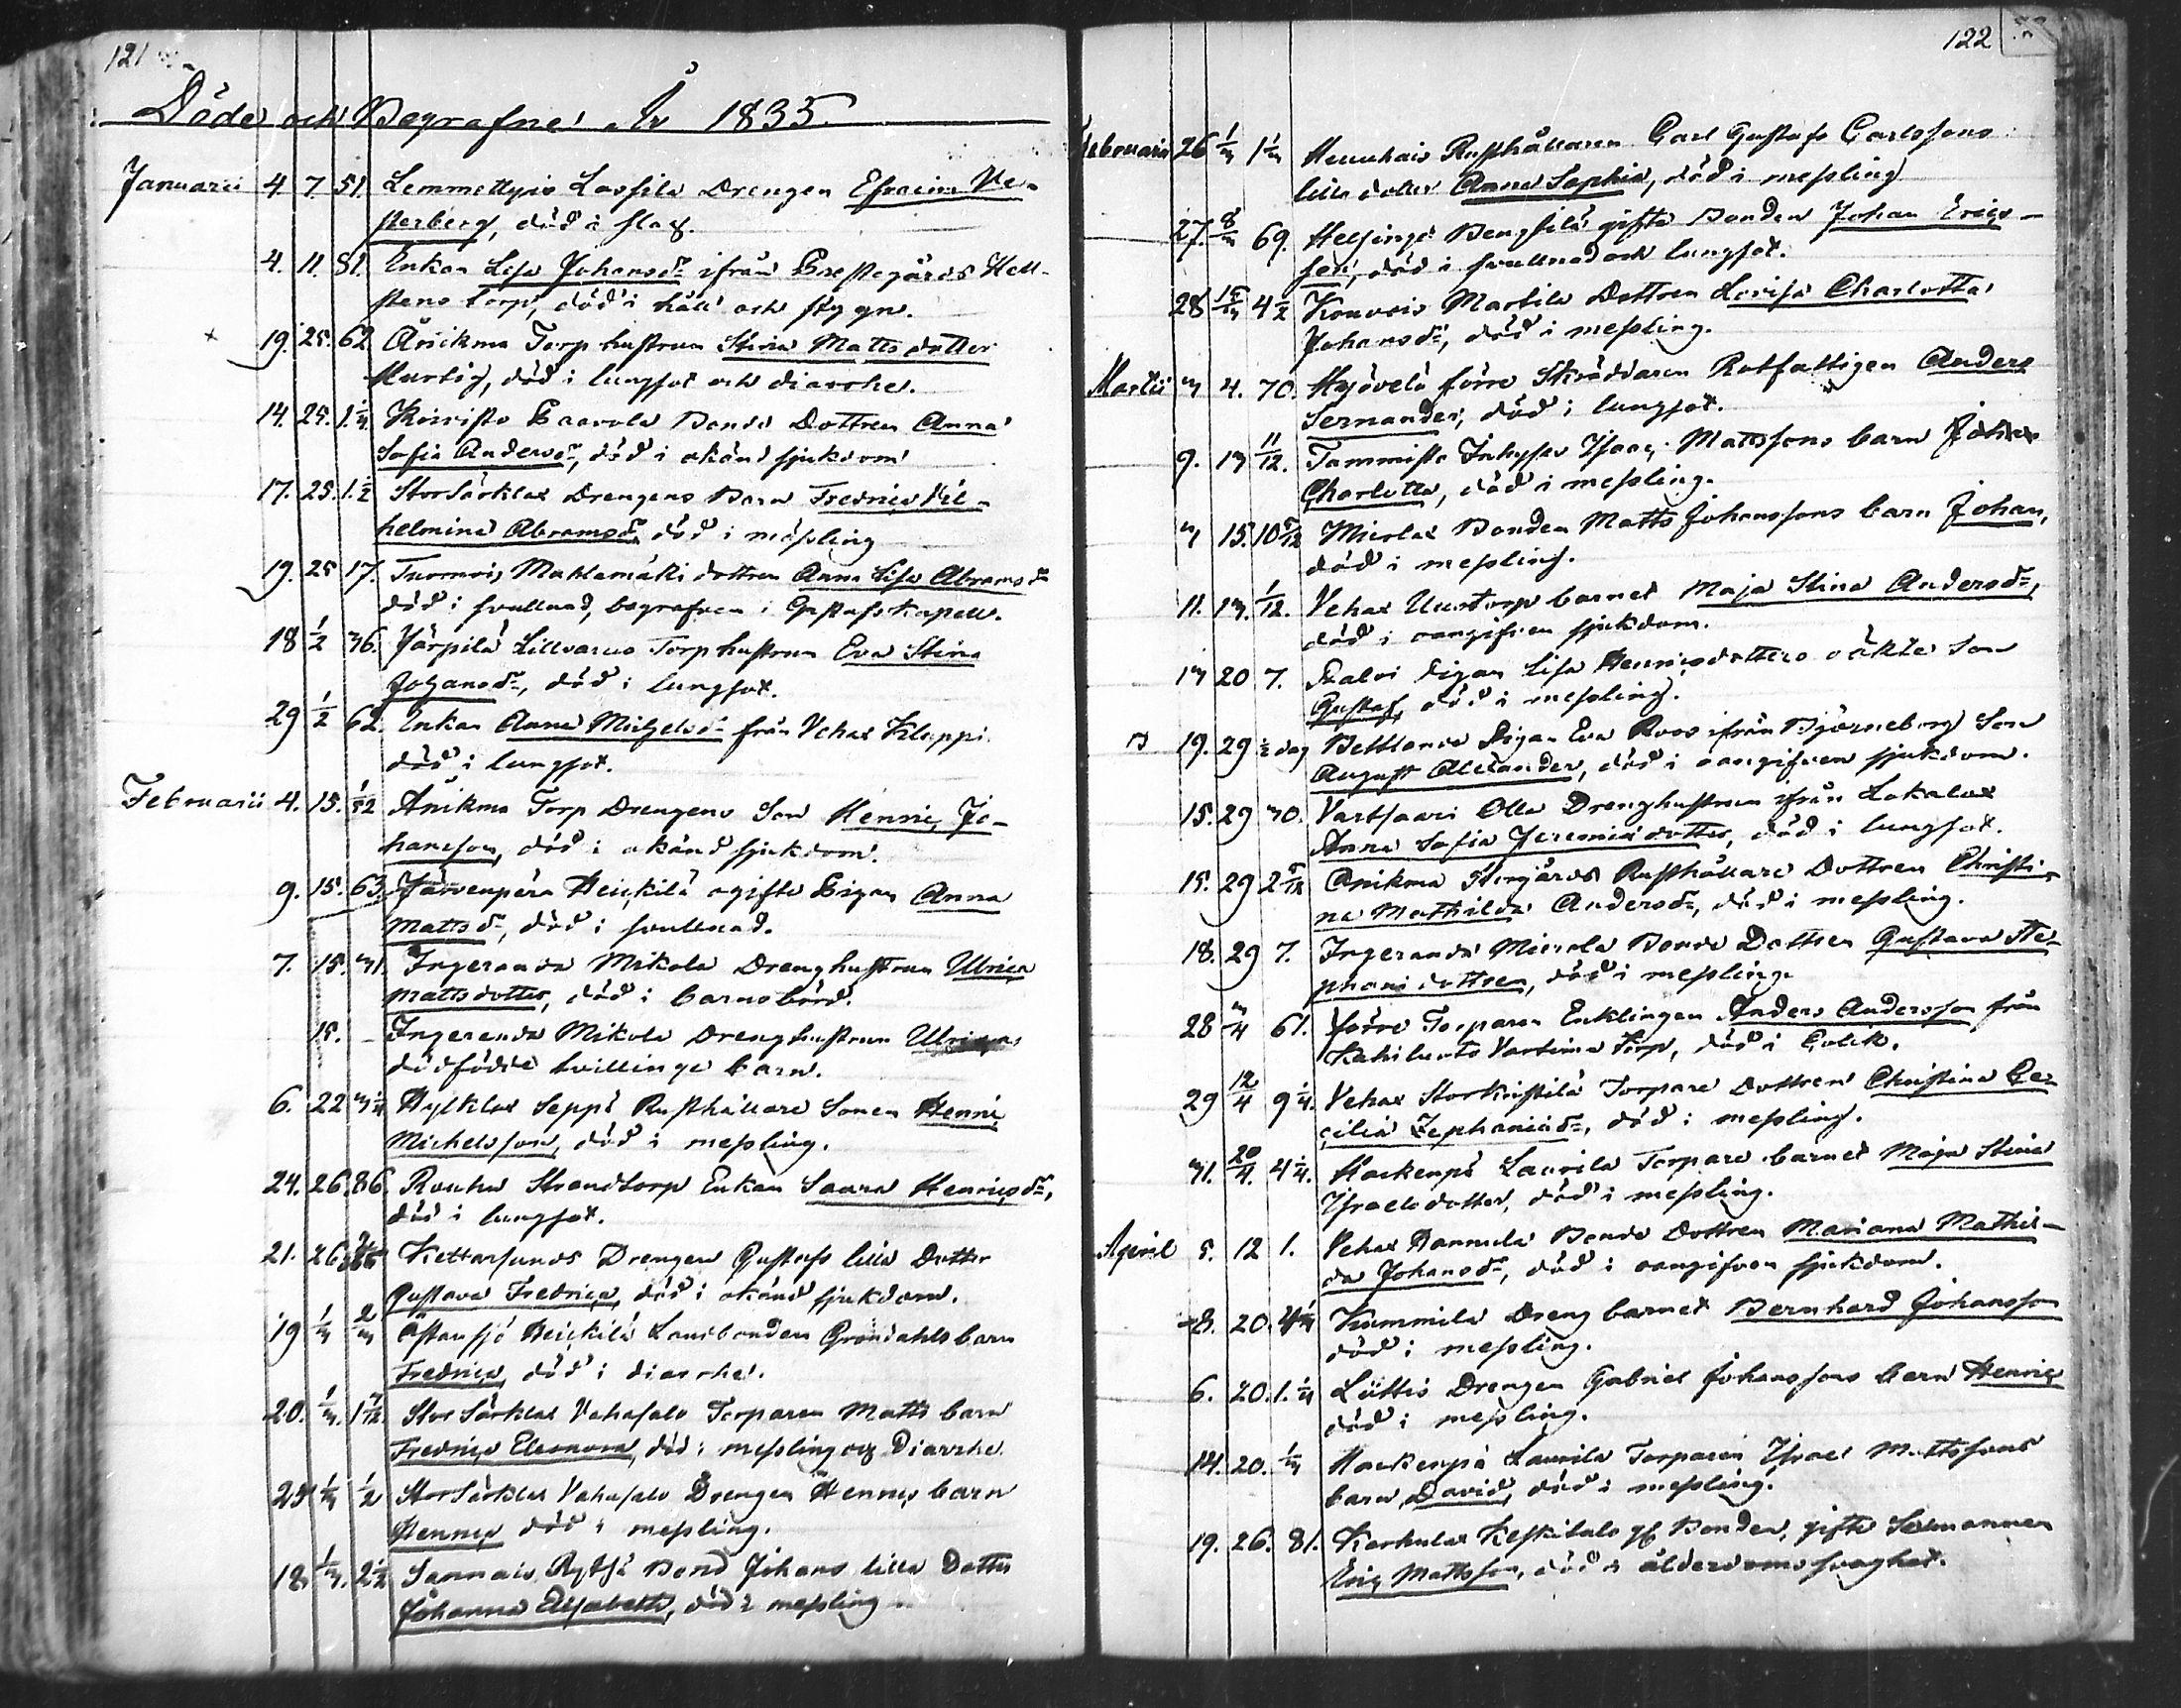 121
Döde och Begrafne År 1835.
Januarii 4. 7. 51. Lemmettyis Lassila Drengen Efraim We-
sterberg, död i slag.
4. 11. 81. Enkan Lisa Johansdr ifrån Prestegårds Hell-
stens torp, död i håll och stygn.
19. 25. 62. Änikma Torp hustrun Stina Matts dotter
Murtig, död i lungsot och diarrhe.
14. 25. 1.¼ Koivisto Paavola Bonde Dottren Anna
Sofia Andersdr, död i okänd sjukdom
17. 25. 1.½ Stor Särklax Drengens Barn Fredrica Vil-
helmina Abramsdr död i mässling
19. 25 17. Mahlamäki dottren Anna Lisa Abramsdr
död i svullnad, begrafven i Gustafs Kapell.
18 1/2 36. Järpilä Lillvarus Torp hustrun Eva Stina
Johansdr, död i lungsot.
29 1/2 62. Enkan Anna Michelsdr från Vehax Kluppi
död i lungsot.
Februarii 4. 15. 1/52 Änikma Torp Drengens Son Henric Jo-
hansson, död i okänd sjukdom.
9. 15. 63. Järvenperä Heickilä ogifte Pigan Anna
Mattsdr, död i svullnad.
7. 15. 31. Ingeranda Mikola Dreng hustrun Ulrica
Mattsdotter, död i barnsbörd.
15. - Ingeranda Mikola Dreng hustrun Ulricas
dödfödde tvillinge barn.
6. 22 3¼ Hylklax Seppä Rusthållare Sonen Henric
Michelsson, död i messling.
24. 26. 86. Rouhu Strandtorp Enkan Saara Henricsdr,
död i lungsot.
21. 26 Kettarsunds Drengen Gustafs lilla Dotter
Gustava Fredrica, död i okänd sjukdom.
19 1/3 2/3 Östansjö Heickilä Landbonden Gröndahls barn
Fredrica, död i diarrhe.
20. 1/3. 1 7/12. Stor Särklax Vahasalo Torparen Matts barn
Fredrica Eleonora, död i messling och Diarrhe.
25 1/3 1/2 Stor Särklax Vahasalo Drengen Henrics barn
Henrica död i messling.
18 1/3. 2½ Sannais Rytsä Bond Johans lilla Dotter
Johanna Elisabeth, död i messling
122
Februarii 26 1/3 1⅓ Rusthållaren Carl Gustafs Carlssons
lilla dotter Anna Sophia, död i messling
27. 8/3 69. Helsinge Bengtilä gifte Bonden Johan Erics-
son, död i svullnad och lungsot.
28 15/3 4½ Kouvois Martila Dottren Lovisa Charlotta
Johansdr, död i messling.
Martii 3 4. 70. Myövelä förre Skräddaren Rotfattigen Anders
Sernander, död i lungsot.
9. 13 11/12. Tammisto Inhyses Isaac Mattssons barn Johanna
Charlotta, död i messling.
3 15. 10 5/12 Mierlax Bonden Matts Johanssons barn Johan,
död i messling.
11. 13. 1/12. Vehax Uustorp barnet Maja Stina Andersdr,
död i oangifven sjukdom.
13 20 7. Palvi Pigan Lisa Henricsdotters oäkte Son
Gustaf, död i messling.
19. 29 ½ dag Bettlande Pigan Eva Roos ifrån Björneborg Son
August Alexander, död i oangifven sjukdom.
15. 29 30. Vartsaari Olla Dreng hustrun ifrån Lokalax
Anna Sofia Jeremiædotter, död i lungsot.
15. 29 2 Änikma Storgårds Rusthållare Dottren Christi-
na Mathilda Andersdr, död i messling.
18. 29 7. Ingeranda Mierola Bonde Dottren Gustava Ste-
phani dottren, död i messling.
28 3/4 61. förre Torparen Enklingen Anders Andersson från
Kahiluoto Vartima Torp, död i Colik.
29 12/4 9¼. Vehax Storkristilä Torpare Dottren Christina Ce-
cilia Zephaniædr, död i messling.
31. 20/4. 4¼. Hackenpä Laurila Torpare barnet Maja Stina
Israels dotter, död i messling.
April 5. 12 1. Vehax Hannula Bonde Dottren Mariana Mathil-
da Johansdr, död i oangifven sjukdom.
8. 20. Kummila Dreng barnet Bernhard Johansson
död i messling.
6. 20. 1.¼ Lättis Drengen Gabriel Johanssons barn Henric
död i messling.
14. 20. 1/3 Hackenpä Laurila Torparen Israel Mattssons
barn David, död i messling.
19. 26. 81. Karhulax Keskitalo gl. Bonden, gifte Sexmannen
Eric Mattsson, död i ålderdoms svaghet.